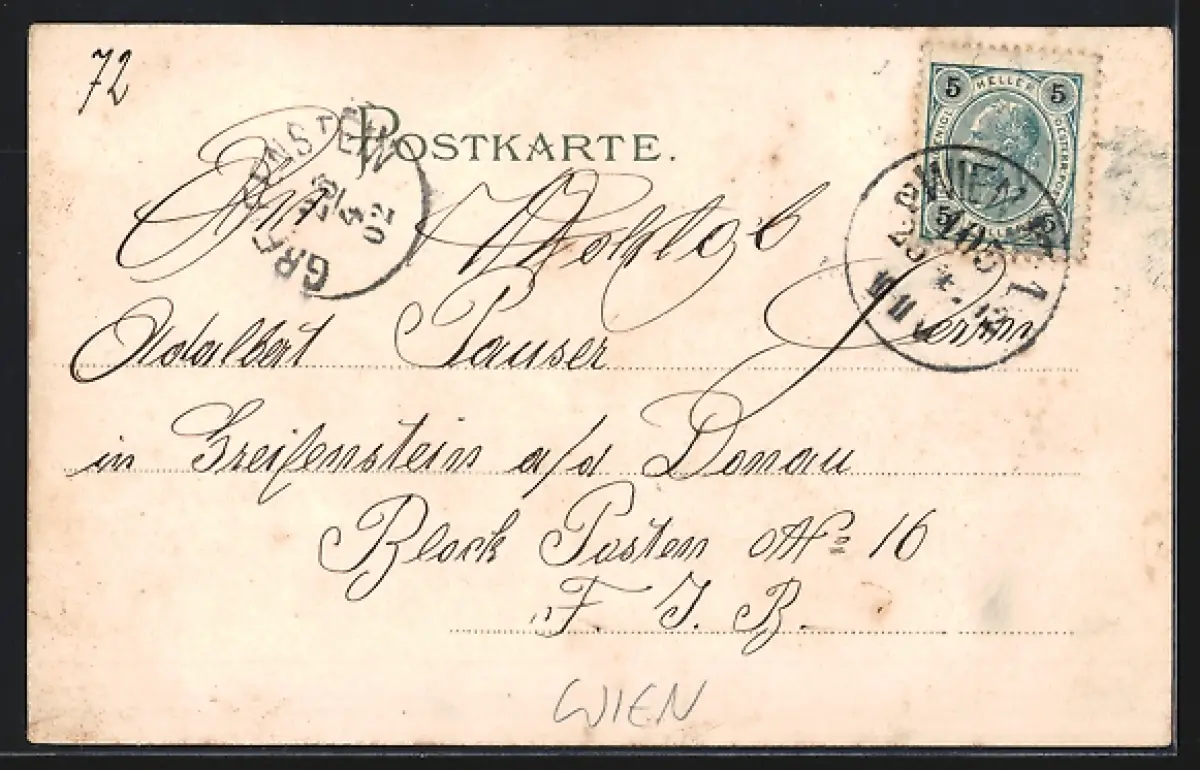 72
POSTKARTE.
5 HELLER 5
GREIFENSTEIN
02
WIEN
An Wohlgb
Adalbert Pauser
in Greifenstein a/d Donau
Block Posten № 16
F. J. B.
WIEN